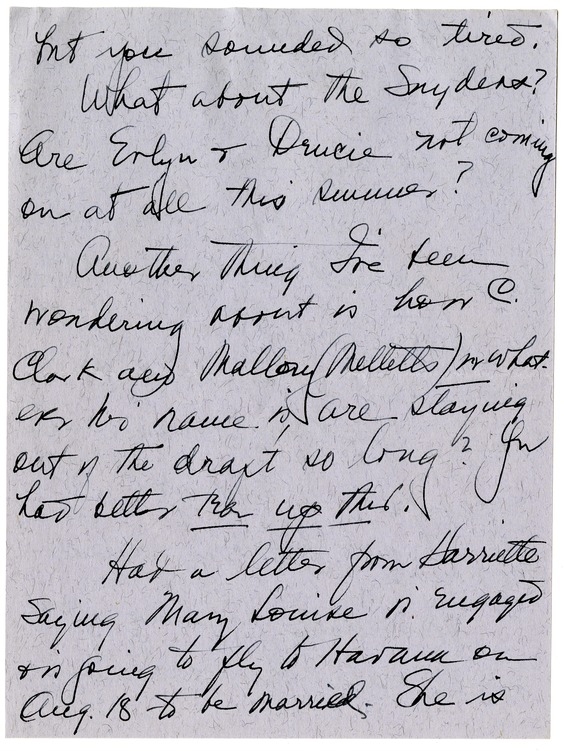 but you sounded so tired.
What about the Snyders?
Are Evlyn & Drucie not coming
on at all this summer?
Another thing I've been
wondering about is how C.
Clark and Mallory (Melletts) or what-
ever his name is, are staying
out of the draft so long? You
had better tear up this.
Had a letter from Harriette
saying Mary Louise is engaged
& is going to fly to Havana on
Aug. 18 to be married. She is